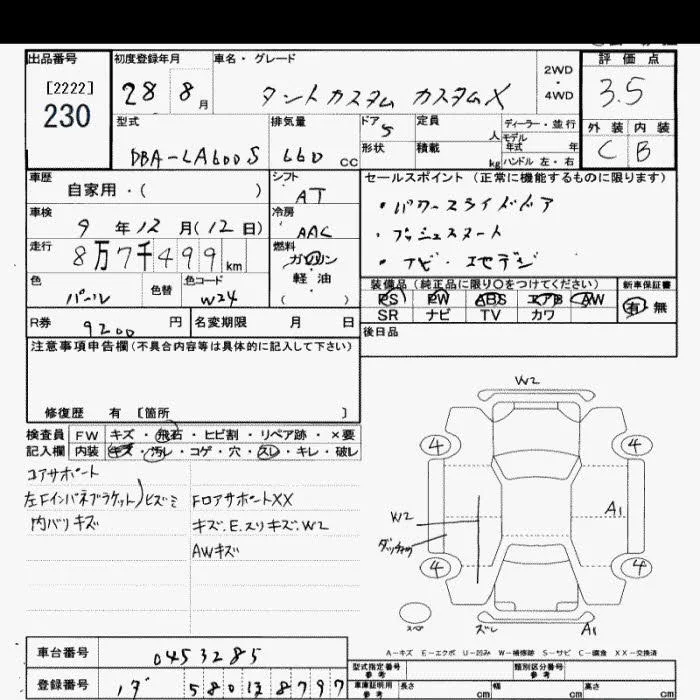 出品番号
[2222]
230
初度登録年月
28 8月
車名・グレード
タントカスタム カスタムX
2WD
・
4WD
評価点
3.5
型式
DBA-LA600S
排気量
660 cc
ドア 5
形状
定員 人
積載 kg
ディーラー・並行
モデル
年式 年
ハンドル 左・右
外装 内装
C B
車歴
自家用・( )
シフト
AT
セールスポイント (正常に機能するものに限ります)
・パワースライドドア
・プッシュスタート
・ナビ・エセデジ
車検
9年12月(12日)
冷房
AAC
走行
8万7千499km
燃料
ガソリン
・
軽油
( )
色
パール
色替
色コード
W24
装備品 (純正品に限り○をつけてください)
PS PW ABS エアB AW
SR ナビ TV カワ
新車保証書
有・無
R券
9200円
名変期限 月 日
後日品
注意事項申告欄(不具合内容等は具体的に記入して下さい)
修復歴 有 [箇所 ]
検査員
記入欄
FW キズ・飛石・ヒビ割・リペア跡・×要
内装 キズ・汚レ・コゲ・穴・スレ・キレ・破レ
コアサポート
左Fインパネブラケット)ヒズミ
内バリキズ
FロアサポートXX
キズ.E.スリキズ.W2
AWキズ
W2
4
4
W2
A1
4
4
スペ
ズレ
A1
A-キズ E-エクボ U-凹み W-補修跡 S-サビ C-腐食 XX-交換済
車台番号
0453285
登録番号
型式指定番号
参考
類別区分番号
参考
車庫証明用
参考
長さ cm
幅 cm
高さ cm